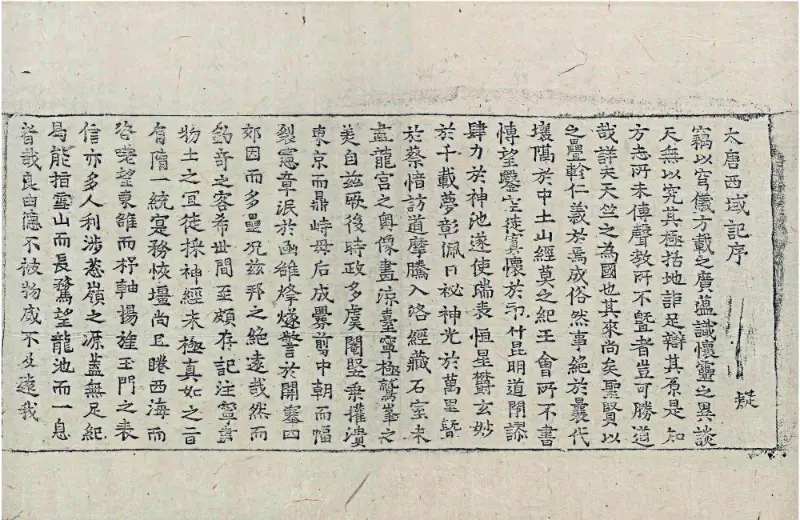 大唐西域記序 疑
竊以穹儀方載之廣蘊識懷靈之異談
天無以究其極括地詎足辯其原是知
方志所未傳聲教所不暨者豈可勝道
哉詳夫天竺之為國也其來尚矣聖賢以
之疊軫仁義於焉成俗然事絕於曩代
壤隔於中土山經莫之紀王會所不書
博望鑿空徒寘懷於邛竹昆明道閉謬
肆力於神池遂使瑞表恒星鬱玄妙
於千載夢彰佩日祕神光於萬里暨
於蔡愔訪道摩騰入洛經藏石室未
盡龍宮之奧像畫涼臺寧極鷲峯之
美自茲厥後時政多虞閹豎乘權潰
東京而鼎峙母后成釁剪中朝而幅
裂憲章泯於函雒烽燧警於關塞四
郊因而多壘況茲邦之絕遠哉然而
釣奇之客希世間至頗存記注寧盡
物土之宜徒採神經未極真如之旨
有隋一統寔務恢壃尚且睠西海而
咨嗟望東雒而杼軸揚旌玉門之表
信亦多人利涉葱嶺之源蓋無足紀
曷能指雪山而長騖望龍池而一息
者哉良由德不被物威不及遠我